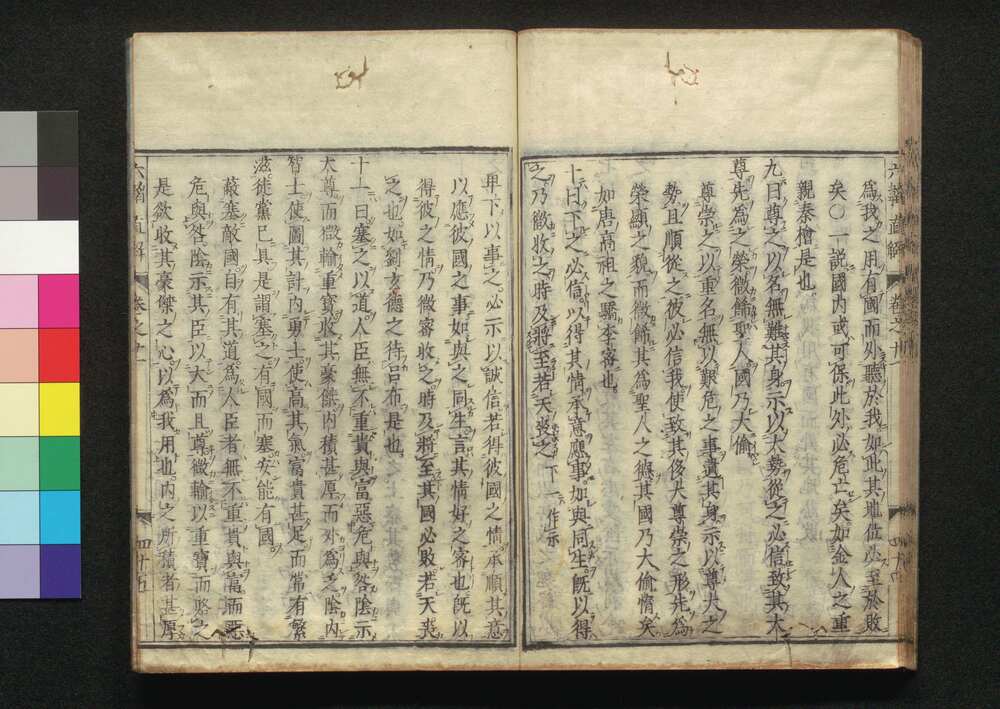 為我之用有國而外聽於我如此其地位必至於敗
矣○一說國內或可保此外必危亡矣如金人之重
親秦檜是也
九曰尊之以名無難其身示以大勢從之必信致其大
尊先為之榮微飾聖人國乃大偷
尊崇之以重名無以艱危之事遺其身示以尊大之
勢且順從之彼必信我使致其侈大尊崇之形先為
榮顯之貌而微飾其為聖人之德其國乃大偷惰矣
如唐高祖之驕李密也
十曰下之必信以得其情承意應事如與同生既以得
之乃微收之時及將至若天喪之 下一作示
卑下以事之必示以誠信若得彼國之情承順其意
以應彼國之事如與之同生言其情好之密也既以
得彼之情乃微密收之時及將至其國必敗若天喪
之也如劉玄德之待呂布是也
十一曰塞之以道人臣無不重貴與富惡危與咎陰示
大尊而微輸重寶收其豪傑內積甚厚而外為乏陰內
智士使圖其計內勇士使高其氣富貴甚足而常有繁
滋徒黨已具是謂塞之有國而塞安能有國
蔽塞敵國自有其道為人臣者無不重貴與富而惡
危與咎陰示其臣以大而且尊微輸以重寶而賂之
是欲收其豪傑之心以為我用也內之所積者甚厚
六韜直解 卷之二 四十五